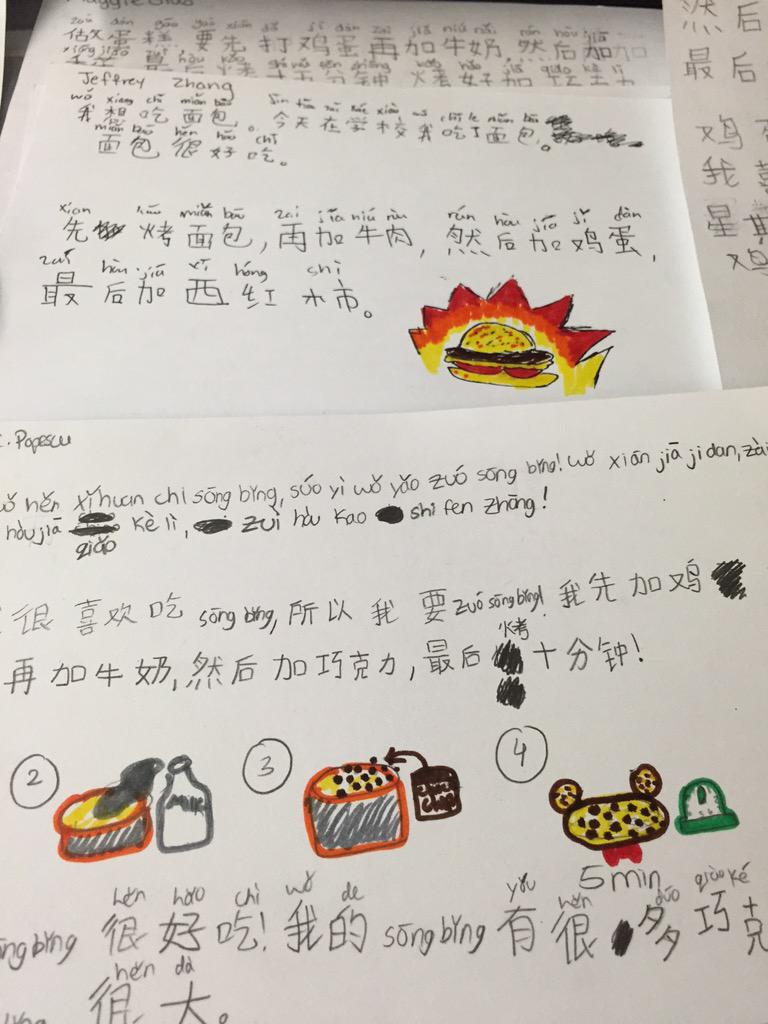 Maggie
zuò dàn gāo yào xiān dǎ jī dàn zài jiā niú nǎi, rán hòu jiā
做蛋糕要先打鸡蛋再加牛奶,然后加
Jeffrey Zhang
wǒ xiǎng chī miàn bāo
我想吃面包。今天在学校我吃了面包,。
miàn bāo hěn hǎo chī
面包很好吃。
xian kǎo miàn bāo zai jiā niú ròu rán hòu jiā jī dàn
先烤面包,再加牛肉,然后加鸡蛋,
zuì hòu jiā xī hóng shì
最后加西红市。
然后
最后
鸡
我喜
星期
鸡
Popescu
hěn xǐhuan chi sōng bǐng, súo yì wǒ yǎo zuó sōng bǐng! wǒ xiān jiā ji dan, zài
hòu jiā qiǎo kè lì, zuì hòu kao shi fen zhōng!
很喜欢吃 sōng bǐng, 所以我要 zuó sōng bǐng! 我先加鸡
烤
再加牛奶,然后加巧克力,最后十分钟!
2 3 4
MILK
chip
5 min
hěn hǎo chì wǒ de yǒu hěn duō qiǎo ké
bǐng 很好吃!我的 sōng bǐng 有很多巧克
hěn dà
很大。